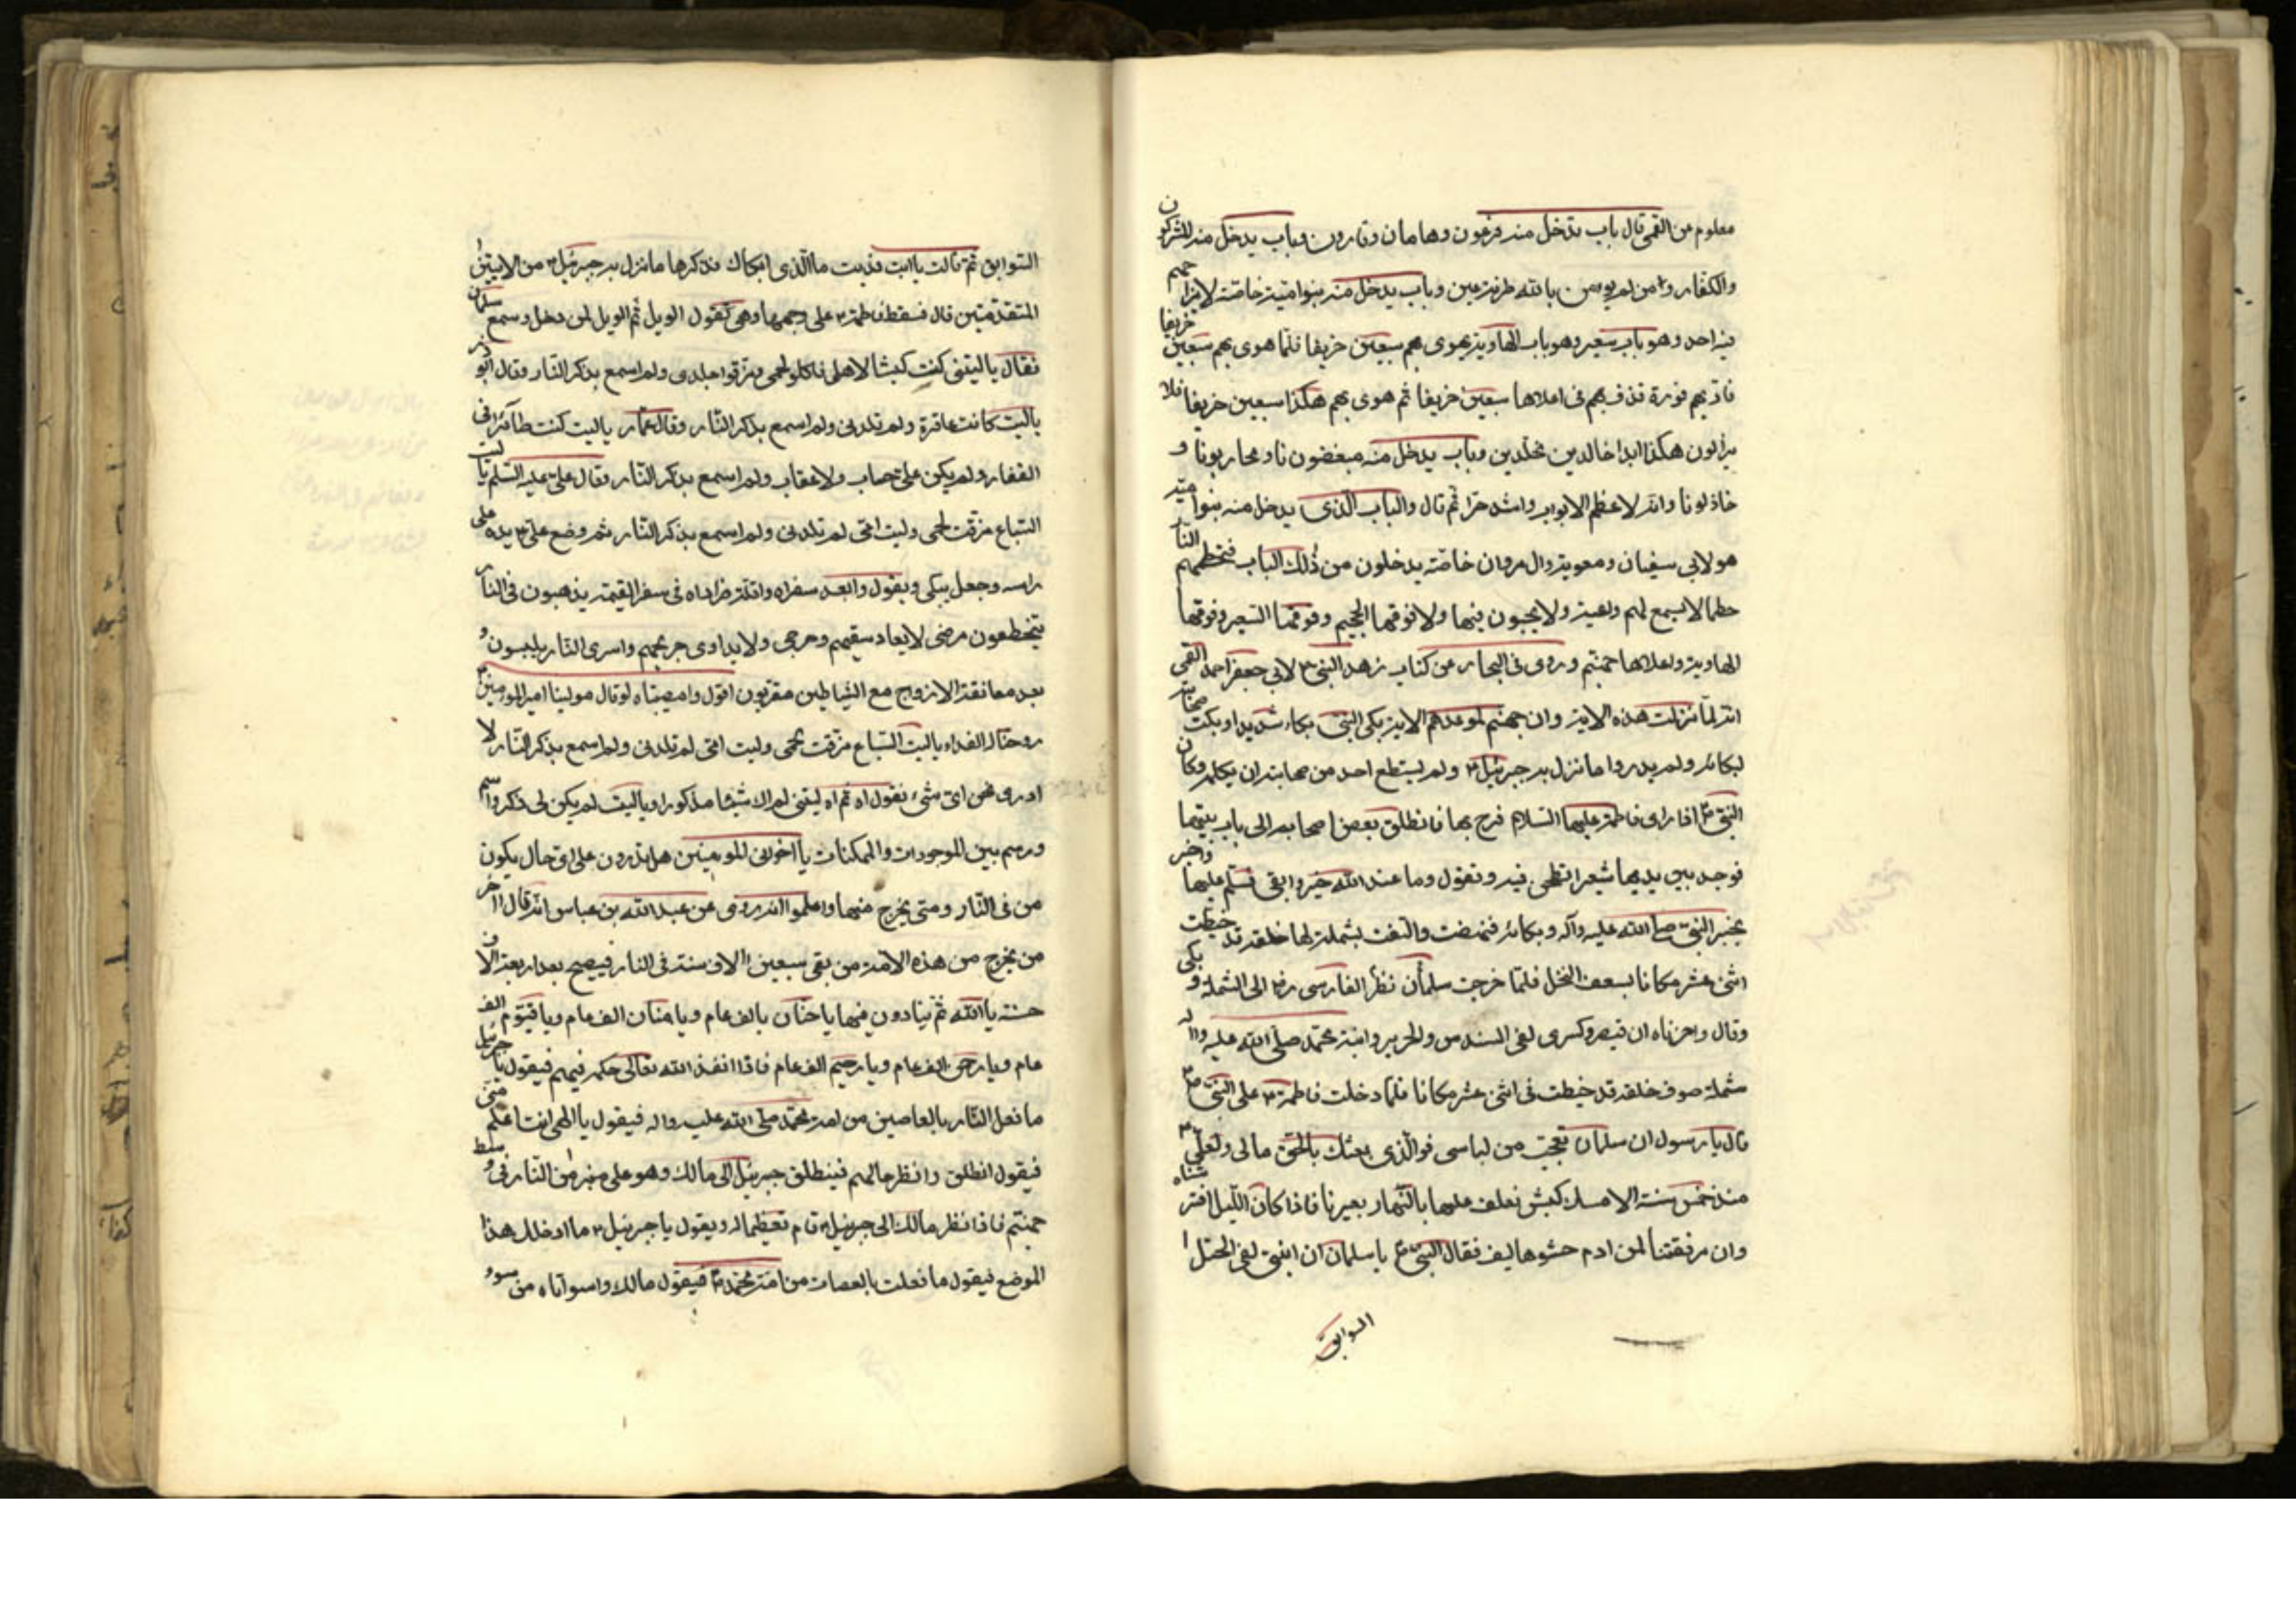 معلوم عن القمى قال باب يدخل منه فرعون وهامان وقارون وباب يدخل منه المشركون
والكفار وامن لم يومن بالله طرفة عين وباب يدخل منه بنوا امية خاصة لايزاحمهم
فيه احد وهو باب سعير وهو باب الهاوية يهوى بهم سبعين خريفا فلما هوى بهم سبعين خريفا
فاذ بهم فورة قذف بهم فى اعلاها سبعين خريفا ثم هوى بهم هكذا سبعين خريفا فلا
يزالون هكذا ابدا خالدين مخلدين وباب يدخل منه مبغضون نا ومحاربونا و
خاذلونا وانه لاعظم الابواب واشد حرا ثم قال والباب الذى يدخل منه بنوا امية
هو لابى سفيان ومعوية وال مروان خاصة يدخلون من ذلك الباب فتحطمهم النار
حطما لا يسمع لهم واعية ولا يحيون فيها ولا فوقها الجحيم وفوقها السعير وفوقها
الهاوية واعلاها جهنم وروى فى البحار عن كتاب زهد النبى ص لابى جعفر احمد القمى
انه لما نزلت هذه الاية وان جهنم لموعدهم الاية بكى النبى بكاء شديدا وبكت صحابته
لبكائه ولم يدروا ما نزل به جبرئيل ع ولم يستطع احد من صحابته ان يكلمه وكان
النبى ص اذا راى فاطمة عليها السلام فرح بها فانطلق بعض اصحابه الى باب بيتها
فوجد بين يديها شعيرا تطحن فيه وتقول وما عند الله خير وابقى فسلم عليها واخبر
بخبر النبى صلى الله عليه وآله وبكائه فنهضت والتفت بشملة لها خلقه قد خيطت
اثنى عشر مكانا بسعف النخل فلما خرجت سلمان نظر الفارسى رض الى الشملة و بكى
وقال واحزناه ان قيصر وكسرى لفى السندس والحرير وابنة محمد صلى الله عليه واله
شملة صوف خلقه قد خيطت فى اثنى عشر مكانا فلما دخلت فاطمة ع على النبى ص
قال يا رسول ان سلمان تعجب من لباسى فوالذى بعثك بالحق ما لى ولعلى ع
منذ خمس سنة الا مسك كبش نعلف عليها بالنهار بعيرنا فاذا كان الليل افترشناه
وان مرفقتنا لمن ادم حشوها ليف فقال النبى ص يا سلمان ان ابنتى لفى الخيل ا
السوابق
السوابق ثم قالت يا ابت فديت ما الذى ابكاك فذكرها ما نزل به جبرئيل ع من الايتين
المتقدمتين قال فسقط فاطمة ع على وجهها وهى تقول الويل ثم الويل لمن دخل وسمع سلمان
فقال ياليتنى كنت كبشا لاهلى فاكلو لحمى ومزقوا جلدى ولم اسمع بذكر النار وقال ابو ذر
ياليت كانت عاقرة ولم تلدنى ولم اسمع بذكر النار وقال عمار ياليت كنت طآئرا فى
القفار ولم يكن على حساب ولا عقاب ولم اسمع بذكر النار وقال على عليه السلم ياليت
السباع مزقت لحمى وليت امى لم تلدنى ولم اسمع بذكر النار ثم وضع على ع يده على
راسه وجعل يبكى ويقول وابعد سفراه واقلة زاداه فى سفر القيمة يذهبون فى النار
يتخطفون مرضى لا يعاد سقيمهم وجرحى ولا يداوى جريحهم واسرى النار يلبسون و
بعد معانقة الازواج مع الشياطين مقربون اقول وامصيبتاه لو قال مولينا امير المومنين ع
روحنا له الفداء ياليت السباع مزقت لحمى وليت امى لم تلدنى ولم اسمع بذكر النار لا
ادرى نحن اى شىء نقول اه ثم اه ليتنى لم اك شيئا مذكورا وياليت لم يكن لى ذكر واسم
ورسم بين الموجودات والممكنات يا اخوانى المومنين هل تدرون على اى حال يكون
من فى النار ومتى يخرج منها واعلموا انه روى عن عبد الله بن عباس انه قال اخر
من يخرج من هذه الامة من بقى سبعين الاف سنة فى النار فيصيح بعد اربعة الاف
سنة يا الله ثم ينادون فيها يا حنان بالف عام ويا منان الف عام ويا قيوم الف
عام ويا رحمن الف عام ويا رحيم الف عام فاذا انفذ الله تعالى حكمه فيهم فيقول يا جبرئيل
ما فعل النار بالعاصين من امة محمد صلى الله عليه واله فيقول يا الهى انت اعلم منى
فيقول انطلق وانظر حالهم فينطلق جبرئيل الى مالك وهو على منبر من النار فى وسط
جهنم فاذا نظر مالك الى جبرئيل ع قام تعظيما له ويقول يا جبرئيل ع ما ادخلك هذا
الموضع فيقول ما فعلت بالعصات من امة محمد ص فيقول مالك واسواتاه من سوء